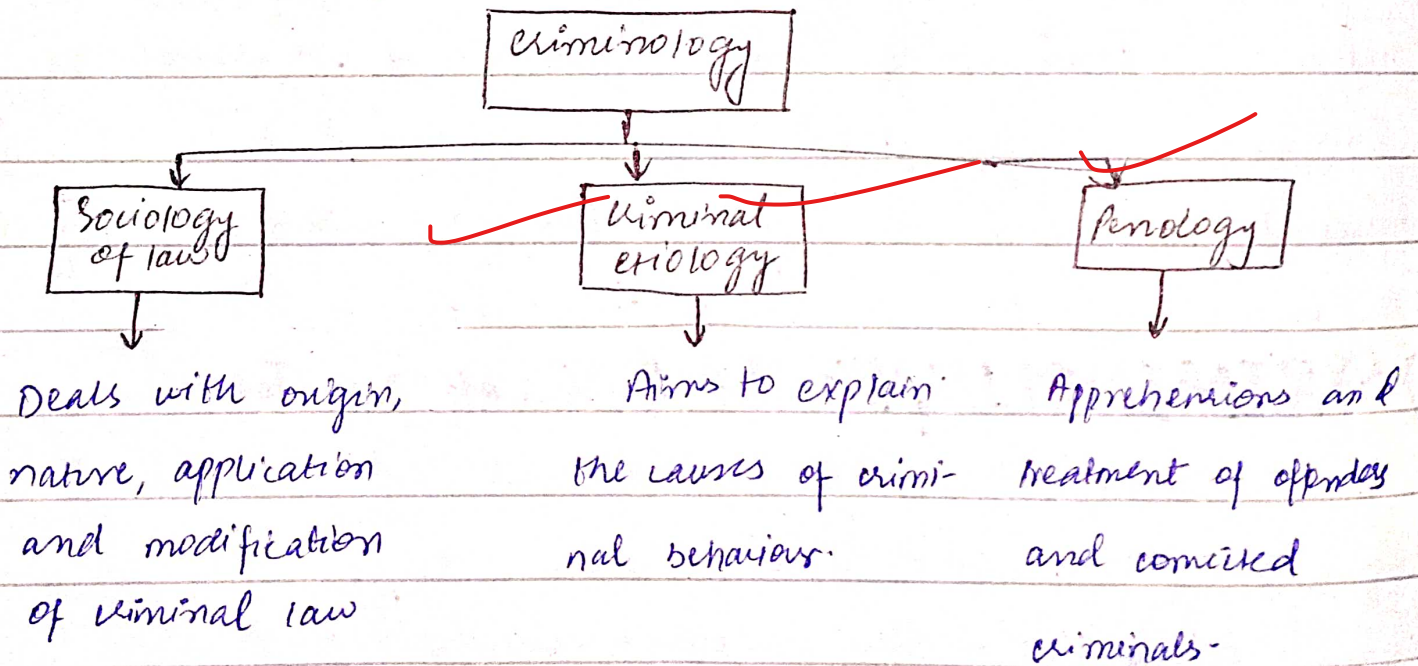 Criminology
Sociology
of law
Criminal
etiology
Penology
Deals with origin,
nature, application
and modification
of criminal law
Aims to explain
the causes of crimi-
nal behaviour.
Apprehensions and
treatment of offenders
and convicted
criminals.